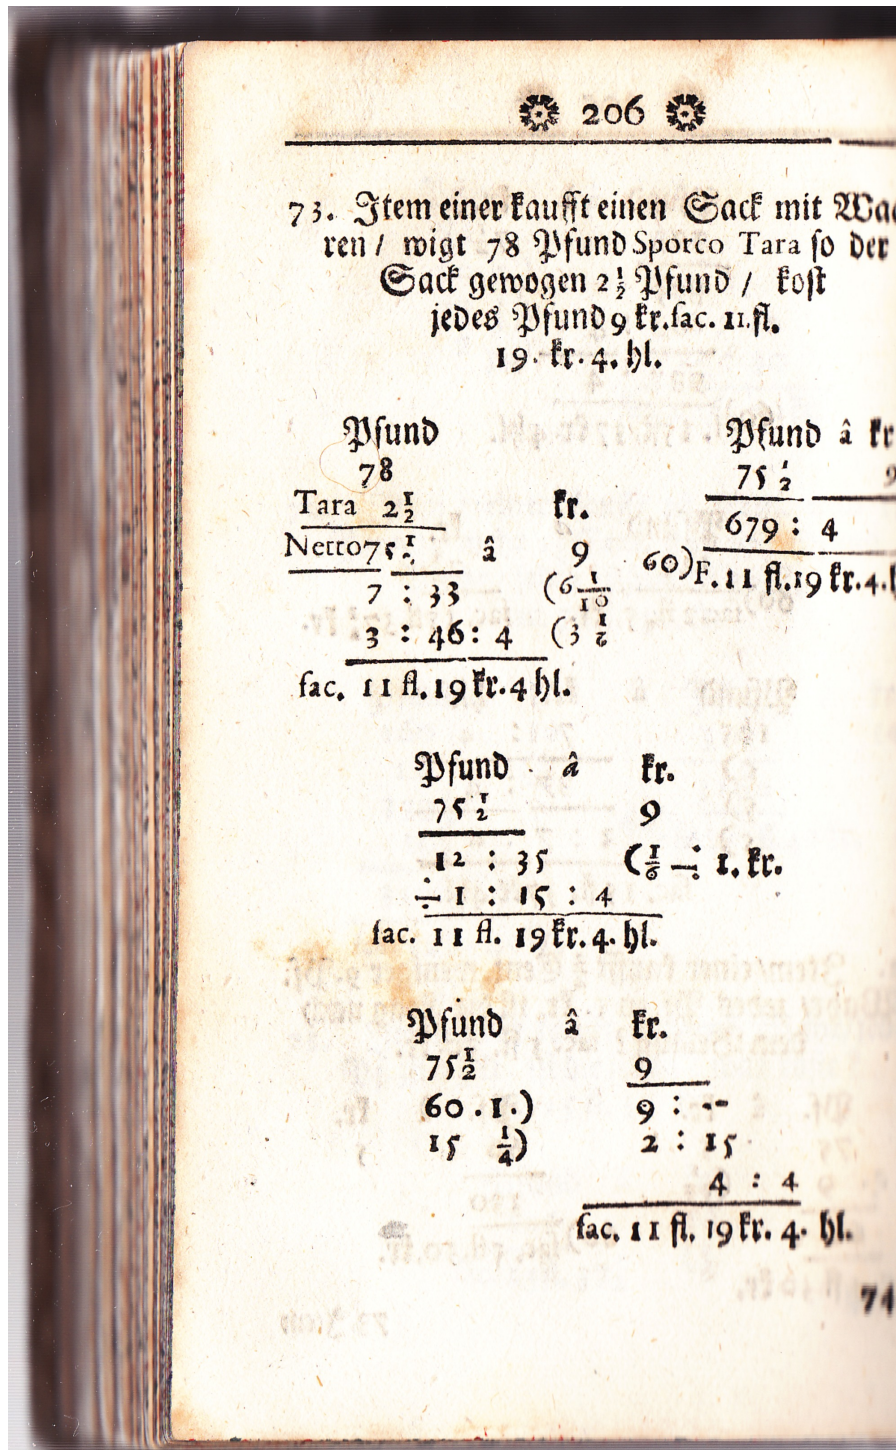 206
73. Item einer kaufft einen Sack mit Waa
ren / wigt 78 Pfund Sporco Tara so der
Sack gewogen 2 1/2 Pfund / kost
jedes Pfund 9 kr. fac. 11. fl.
19. kr. 4. hl.
Pfund
78
Tara 2 1/2
kr.
Netto 75 1/2 â 9
7 : 33 (6 1/10
3 : 46 : 4 (3 1/2
fac. 11 fl. 19 kr. 4 hl.
Pfund â kr
75 1/2 9
679 : 4
60) F. 11 fl. 19 kr. 4. h
Pfund â kr.
75 1/2 9
12 : 35 (1/6 ÷ 1. kr.
÷ 1 : 15 : 4
fac. 11 fl. 19 kr. 4. hl.
Pfund â kr.
75 1/2 9
60 . 1 .) 9 : --
15 1/4) 2 : 15
4 : 4
fac. 11 fl. 19 kr. 4. hl.
74